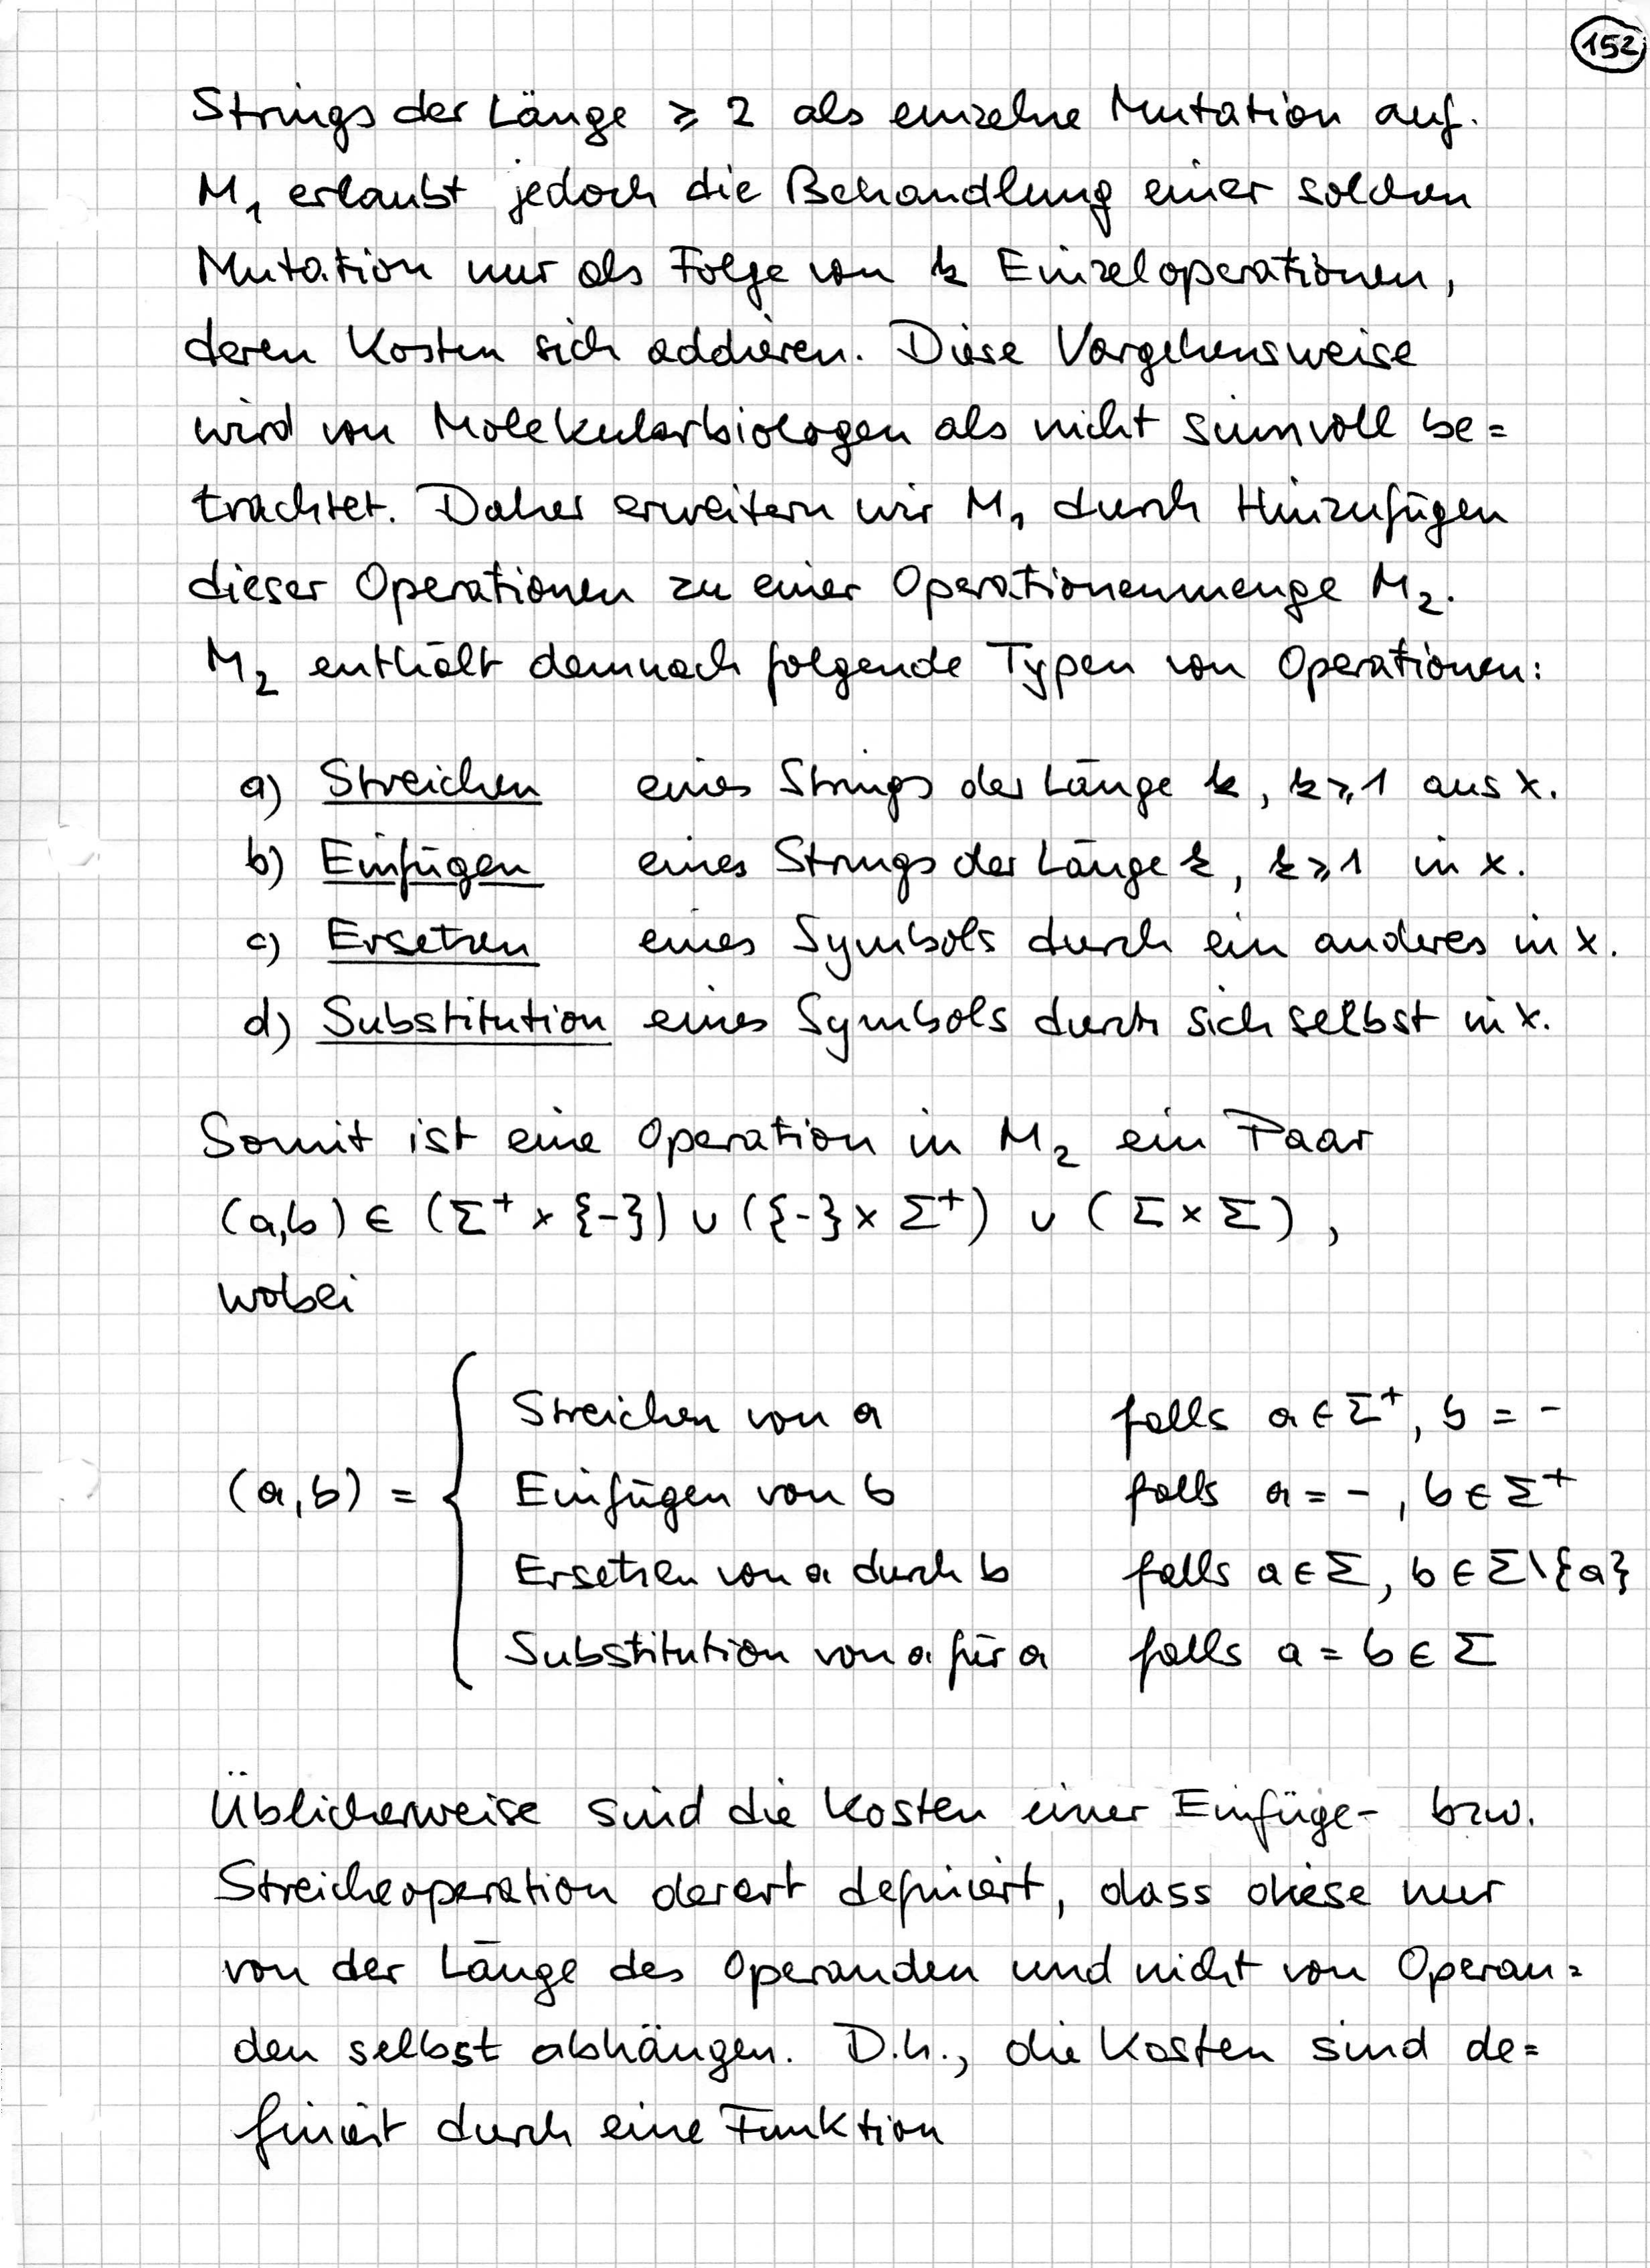 152
Strings der Länge ≥ 2 als einzelne Mutation auf.
M₁ erlaubt jedoch die Behandlung einer solchen
Mutation nur als Folge von k Einzeloperationen,
deren Kosten sich addieren. Diese Vorgehensweise
wird von Molekularbiologen als nicht sinnvoll be=
trachtet. Daher erweitern wir M₁ durch Hinzufügen
dieser Operationen zu einer Operationenmenge M₂.
M₂ enthält demnach folgende Typen von Operationen:
a) Streichen eines Strings der Länge k, k ≥ 1 aus x.
b) Einfügen eines Strings der Länge k, k ≥ 1 in x.
c) Ersetzen eines Symbols durch ein anderes in x.
d) Substitution eines Symbols durch sich selbst in x.
Somit ist eine Operation in M₂ ein Paar
(a,b) ∈ (Σ⁺ × {-}) ∪ ({-} × Σ⁺) ∪ (Σ × Σ),
wobei
Streichen von a falls a ∈ Σ⁺, b = -
(a,b) = { Einfügen von b falls a = -, b ∈ Σ⁺
Ersetzen von a durch b falls a ∈ Σ, b ∈ Σ\{a}
Substitution von a für a falls a = b ∈ Σ
Üblicherweise sind die Kosten einer Einfüge- bzw.
Streicheoperation derart definiert, dass diese nur
von der Länge des Operanden und nicht von Operan=
den selbst abhängen. D.h., die Kosten sind de=
finiert durch eine Funktion